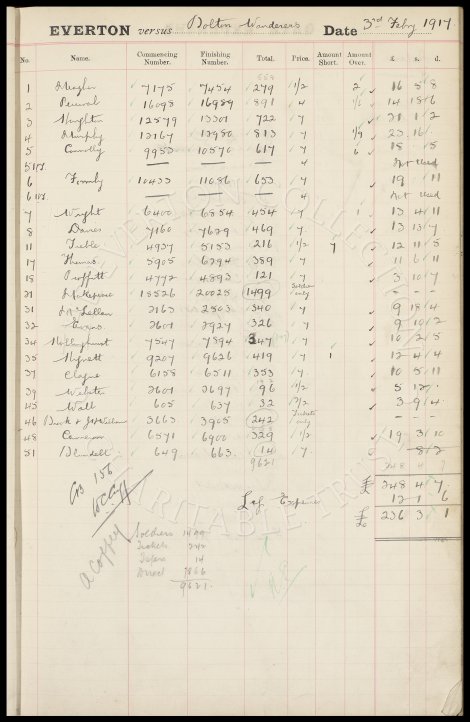 EVERTON versus Bolton Wanderers Date 3rd Feby 1917
No. Name. Commencing Number. Finishing Number. Total. Price. Amount Short. Amount Over. £ s. d.
1 7175 7454 279 1/2 2 16 5 8
2 Percival 16098 16989 891 4 14 18 6
3 Houghton 12579 13301 722 1/- 31 1 2
4 Murphy 13167 13980 813 1/- 23 16 -
5 Connolly 9953 10570 617 1/- 6 18 5
5 Not Used
6 Formby 10433 11086 653 1/- 19 11
6 4 Not Used
7 Wright 6400 6854 454 1/- 1 13 4 11
8 Davies 7160 7629 469 1/- 13 13 7
11 Treble 4937 5153 216 1/2 12 11 5
17 Thomas 5905 6294 389 1/- 11 6 11
18 Proffitt 4772 4893 121 1/- 3 10 7
21 Makepeace 18526 20025 1499 Soldiers only - - -
31 McLellan 2163 2503 340 1/- 9 18 4
32 Evans 2601 2927 326 1/- 9 10 2
34 Mellinghunt 7547 7894 347 1/- 10 2 5
35 Hignett 9207 9626 419 1/- 1 12 4 4
37 Clague 6158 6511 353 1/- 10 5 11
39 Webster 3601 3697 96 1/2 5 12 -
45 Wall 605 637 32 2/2 3 9 4
46 3663 3905 242 Tickets only - - -
48 Cameron 6571 6900 329 1/2 19 3 10
51 Blundell 649 663 14 1/- 8 2
9621 248 4 7
£ 248 4 7
Less Expenses 12 1 6
£ 236 3 1
156
A Coffey
Soldiers 1499
Tickets 242
14
7866
9621
EVERTON COLLECTION
CHARITABLE TRUST